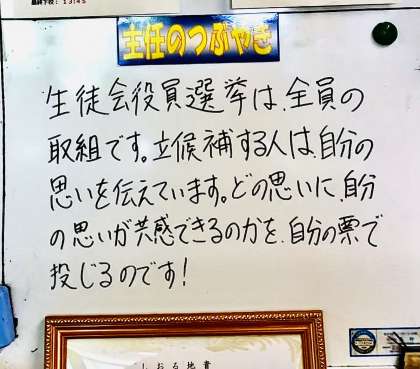 最終下校：13:45
主任のつぶやき
生徒会役員選挙は、全員の
取組です。立候補する人は、自分の
思いを伝えています。どの思いに、自分
の思いが共感できるのかを、自分の票で
投じるのです!
しおる地貴